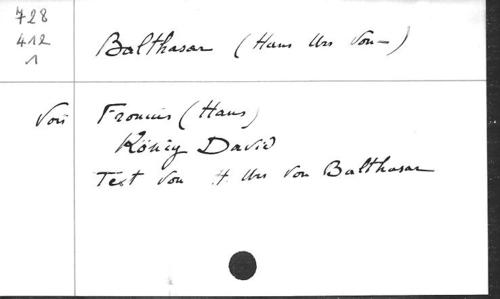 728
412
1
Balthasar (Hans Urs von–)
Voir Fronius (Hans)
König David
Text von H. Urs von Balthasar